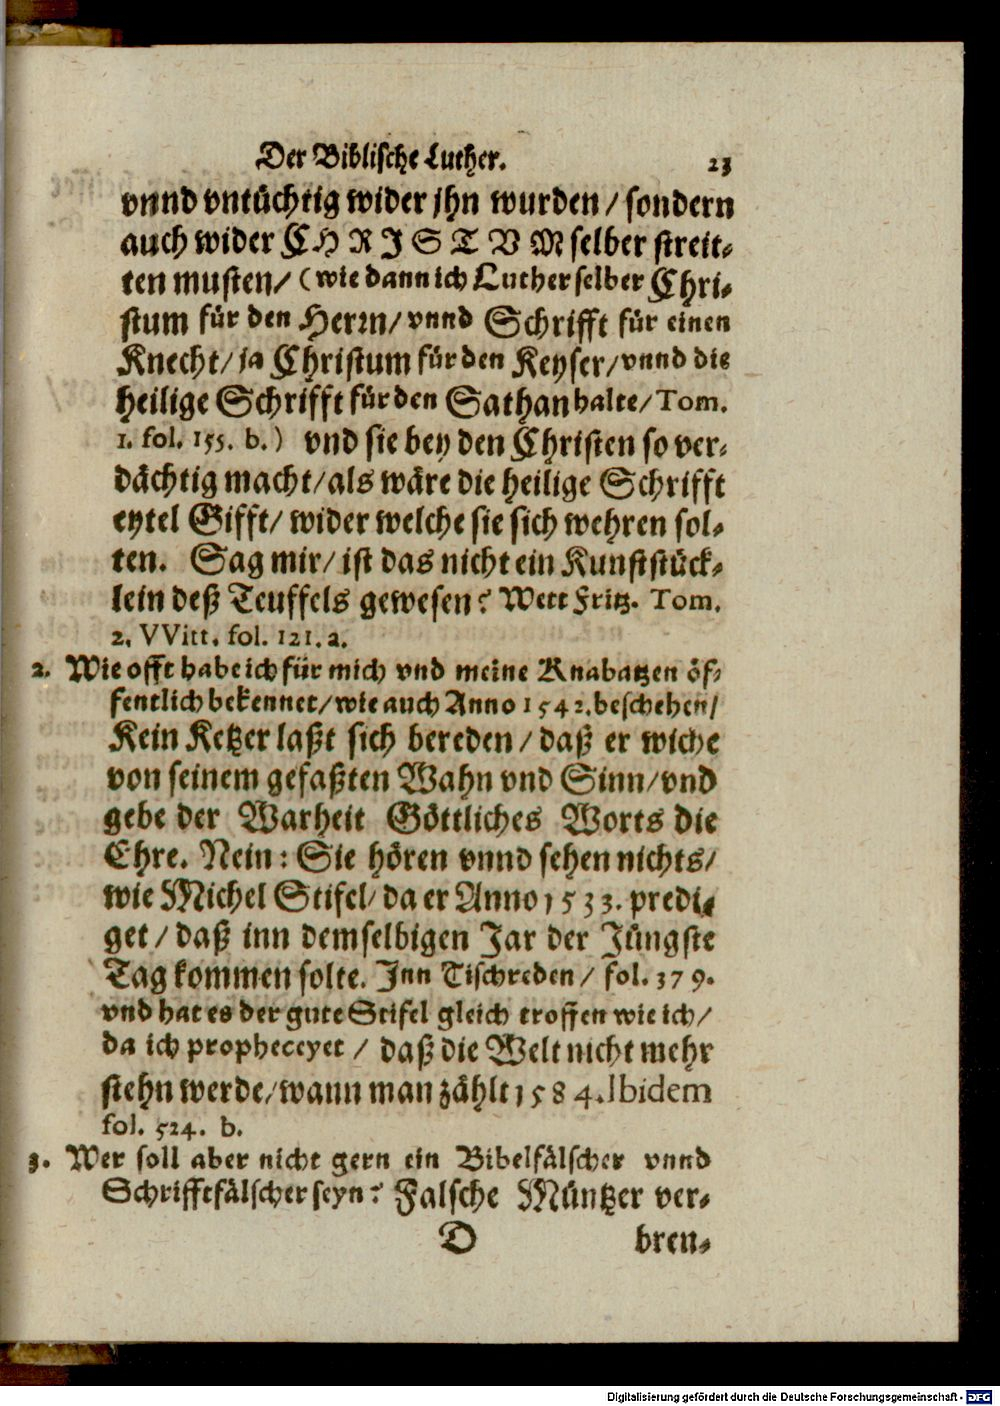 Der Biblische Luther. 23
vnnd vntüchtig wider jhn wurden / sondern
auch wider CHRISTVM selber streit-
ten musten / (wie dann ich Luther selber Chri-
stum für den Herrn / vnnd Schrifft für einen
Knecht / ja Christum für den Keyser / vnnd die
heilige Schrifft für den Sathan halte / Tom.
1. fol. 155. b.) vnd sie bey den Christen so ver-
dächtig macht / als wäre die heilige Schrifft
eytel Gifft / wider welche sie sich wehren sol-
ten. Sag mir / ist das nicht ein Kunststück-
lein deß Teuffels gewesen? Wett Fritz. Tom.
2. VVitt. fol. 121. a.
2. Wie offt habe ich für mich vnd meine Knabatzen öf-
fentlich bekennet / wie auch Anno 1542. beschehen /
Kein Ketzer laßt sich bereden / daß er wiche
von seinem gefaßten Wahn vnd Sinn / vnd
gebe der Warheit Göttliches Worts die
Ehre. Nein: Sie hören vnnd sehen nichts /
wie Michel Stifel / da er Anno 1533. predi-
get / daß inn demselbigen Jar der Jüngste
Tag kommen solte. Inn Tischreden / fol. 379.
vnd hat es der gute Stifel gleich troffen wie ich /
da ich propheceyet / daß die Welt nicht mehr
stehn werde / wann man zählt 1584. Ibidem
fol. 524. b.
3. Wer soll aber nicht gern ein Bibelfälscher vnnd
Schrifftfälscher seyn? Falsche Müntzer ver-
D bren-
Digitalisierung gefördert durch die Deutsche Forschungsgemeinschaft - DFG